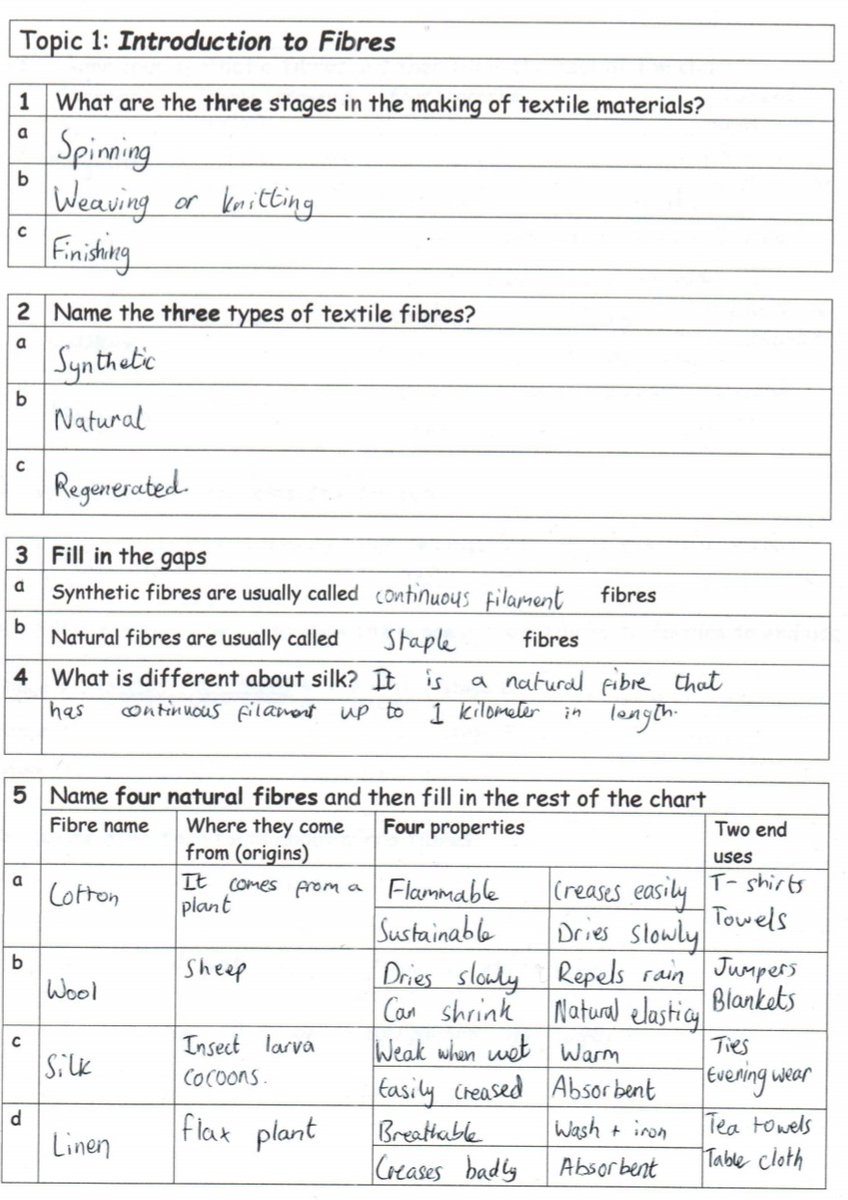 Topic 1: Introduction to Fibres
1 What are the three stages in the making of textile materials?
a Spinning
b Weaving or knitting
c Finishing
2 Name the three types of textile fibres?
a Synthetic
b Natural
c Regenerated
3 Fill in the gaps
a Synthetic fibres are usually called continuous filament fibres
b Natural fibres are usually called Staple fibres
4 What is different about silk? It is a natural fibre that
has continuous filament up to 1 kilometer in length.
5 Name four natural fibres and then fill in the rest of the chart
Fibre name Where they come Four properties Two end
from (origins) uses
a Cotton It comes from a Flammable Creases easily T-shirts
plant Sustainable Dries slowly Towels
b Wool Sheep Dries slowly Repels rain Jumpers
Can shrink Natural elasticy Blankets
c Silk Insect larva Weak when wet Warm Ties
cocoons. Easily creased Absorbent Evening wear
d Linen flax plant Breathable Wash + iron Tea towels
Creases badly Absorbent Table cloth